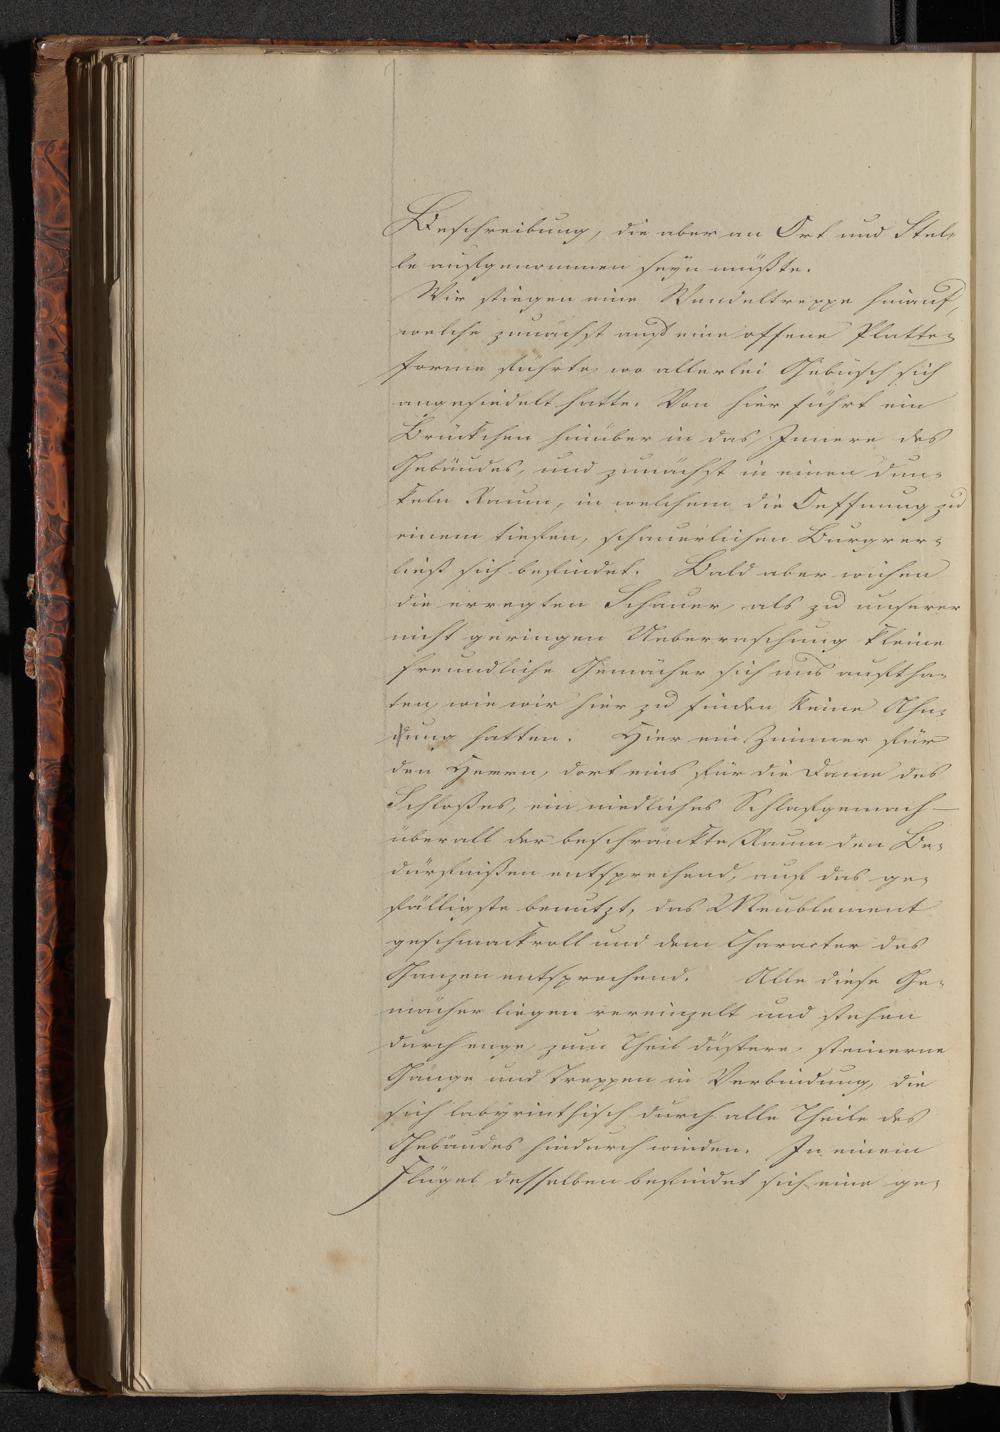 Beschreibung, die aber an Ort und Stel-
le aufgenommen seyn müßte.
Wir stiegen eine Wendeltreppe hinauf,
welche zunächst auf eine offene Platte-
forme führte, wo allerlei Gebüsch sich
angesiedelt hatte. Von hier führt ein
Brückchen hinüber in das Innere des
Gebäudes, und zunächst in einen dun-
keln Raum, in welchem die Oeffnung zu
einem tiefen, schauerlichen Burgver-
ließ sich befindet. Bald aber wichen
die erregten Schauer, als zu unserer
nicht geringen Ueberraschung kleine
freundliche Gemächer sich uns auftha-
ten, wie wir hier zu finden keine Ahn-
dung hatten. Hier ein Zimmer für
den Herrn, dort eins für die Dame des
Schloßes, ein niedliches Schlafgemach –
überall der beschränkte Raum den Be-
dürfnißen entsprechend, auf das ge-
fälligste benutzt, das Meublement
geschmackvoll und dem Character des
Ganzen entsprechend. Alle diese Ge-
mächer liegen vereinzelt und stehen
durch enge, zum Theil düstere, steinerne
Gänge und Treppen in Verbindung, die
sich labyrinthisch durch alle Theile des
Gebäudes hindurch winden. In einem
Flügel desselben befindet sich eine ge-